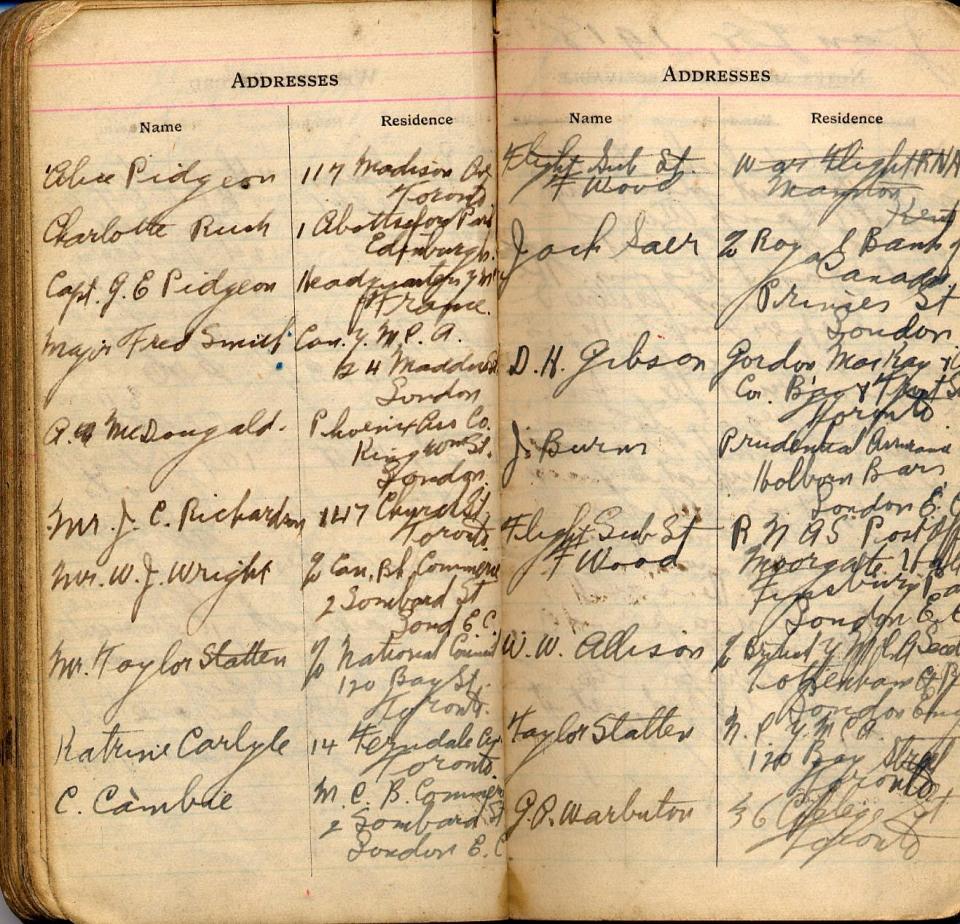 ADDRESSES
Name Residence
Alice Pidgeon 117 Madison Av
Toronto
Charlotte Rush 1 Abottsford Park
Edinburgh
Capt. G. E Pidgeon Headquarters
France
Major Fred Smith Can. Y. M. C. A.
London
McDougald. Phoenix Ass Co.
King Wm St.
London
Mr. J. C. Richardson 147 Church St.
Toronto
W. J. Wright % Can. Bk. Commerce
2 Lombard St
Lond E. C.
Mr. Taylor Statten % National Council
120 Bay St.
Toronto.
Katrine Carlyle 14 Ferndale Av
Toronto
C. Cambie M. C. B. Commerce
2 Lombard St
London E. C
ADDRESSES
Name Residence
Flight Sub Lt. War Flight RNA
F Wood Manston
Kent
Jack Saer % Royal Bank of
Canada
Princes St
London
D. H. Gibson Gordon MacKay
Cor. Bay & Front St
Toronto
J. Burn Prudential
Holborn Bars
London E. C
Flight Sub Lt R N A S Post Off
F Wood Moorgate Hall
Finsbury
London E. C
W. W. Allison % British Y M C A
Tottenham
London Eng
Taylor Statten N. C. Y M C A
120 Bay Street
Toronto
G. A. Warburton 36 College St
Toronto